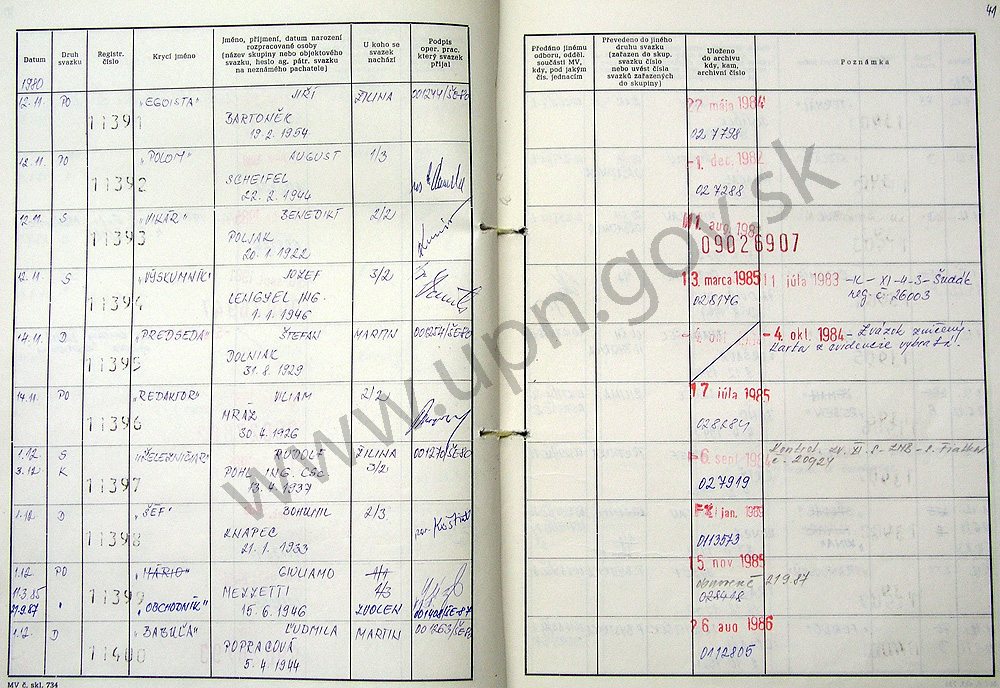 41
Datum
Druh svazku
Registr. číslo
Krycí jméno
Jméno, příjmení, datum narození rozpracované osoby (název skupiny nebo objektového svazku, heslo ag. pátr. svazku na neznámého pachatele)
U koho se svazek nachází
Podpis oper. prac. který svazek přijal
Předáno jinému odboru, odděl. součásti MV, kdy, pod jakým čís. jednacím
Převedeno do jiného druhu svazku (zařazen do skup. svazku číslo nebo uvést čísla svazků zařazených do skupiny)
Uloženo do archivu kdy, kam, archivní číslo
Poznámka
1980
12.11. PO 11391 „EGOISTA“ JIŘÍ ŽILINA
BARTONĚK
19.2.1954
27 mája 1984
027798
12.11. PO 11392 „POLOM“ AUGUST 1/3
SCHEIFEL
22.2.1944
-1. dec. 1982
027288
12.11. S 11393 „VIKÁR“ BENEDIKT 2/2
POLJAK
20.1.1922
1. aug.
09026907
12.11. S 11394 „VÝSKUMNÍK“ JOZEF 3/2
LENGYEL ING.
1.1.1946
13. marca 1985 11 júla 1983
028146
reg. č. 26003
14.11. D 11395 „PREDSEDA“ ŠTEFAN MARTIN
DOLNIAK
31.8.1929
-4. okl. 1984 - Zväzok zničený.
Karta z evidencie vybratá!
14.11. PO 11396 „REDAKTOR“ VILIAM 2/2
MRÁZ
30.4.1926
17 júla 1985
028284
1.12. S 11397 „ŽELEZNIČIAR“ RUDOLF ŽILINA
3.12. K POHL ING. CSC 3/2
13.4.1937
-6. sept
027919
č. 20924
1.12. D 11398 „ŠÉF“ BOHUMIL 2/3
KNAPEC
21.1.1933
jan. 1989
0113573
1.12. PO 11399 „MÁRIO“ GIULIAMO
11.3.85 MEZZETTI
21.9.87 „OBCHODNÍK“ 15.6.1946 ZVOLEN
15 nov 1985
21.9.87
1.12. D 11400 „BABUĽA“ ĽUDMILA MARTIN
POPRACOVÁ
5.4.1944
26 aug 1986
0112805
MV č. skl. 734
www.upn.gov.sk